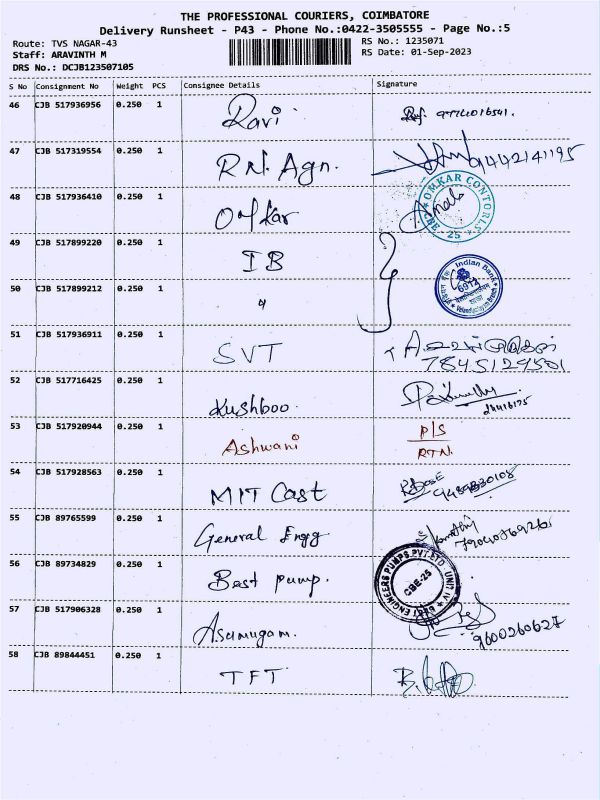 THE PROFESSIONAL COURIERS, COIMBATORE
Delivery Runsheet - P43 - Phone No.:0422-3505555 - Page No.:5
Route: TVS NAGAR-43 RS No.: 1235071
Staff: ARAVINTH M RS Date: 01-Sep-2023
DRS No.: DCJB123507105
S No Consignment No Weight PCS Consignee Details Signature
46 CJB 517936956 0.250 1 Ravi
47 CJB 517319554 0.250 1 R.N. Agn. 9442141195
48 CJB 517936410 0.250 1 Omkar OMKAR CONTORLS CBE 25
49 CJB 517899220 0.250 1 IB Indian Bank
50 CJB 517899212 0.250 1 "
51 CJB 517936911 0.250 1 SVT
7845129501
52 CJB 517716425 0.250 1 Kushboo
53 CJB 517920944 0.250 1 Ashwani P/S
RTN.
54 CJB 517928563 0.250 1 MIT Cast
55 CJB 89765599 0.250 1 General Engg
56 CJB 89734829 0.250 1 Best pump. BEST ENGINEERS PUMPS PVT LTD UNIT IV CBE-25
57 CJB 517906328 0.250 1 Asumugam. 9600260627
58 CJB 89844451 0.250 1 TFT